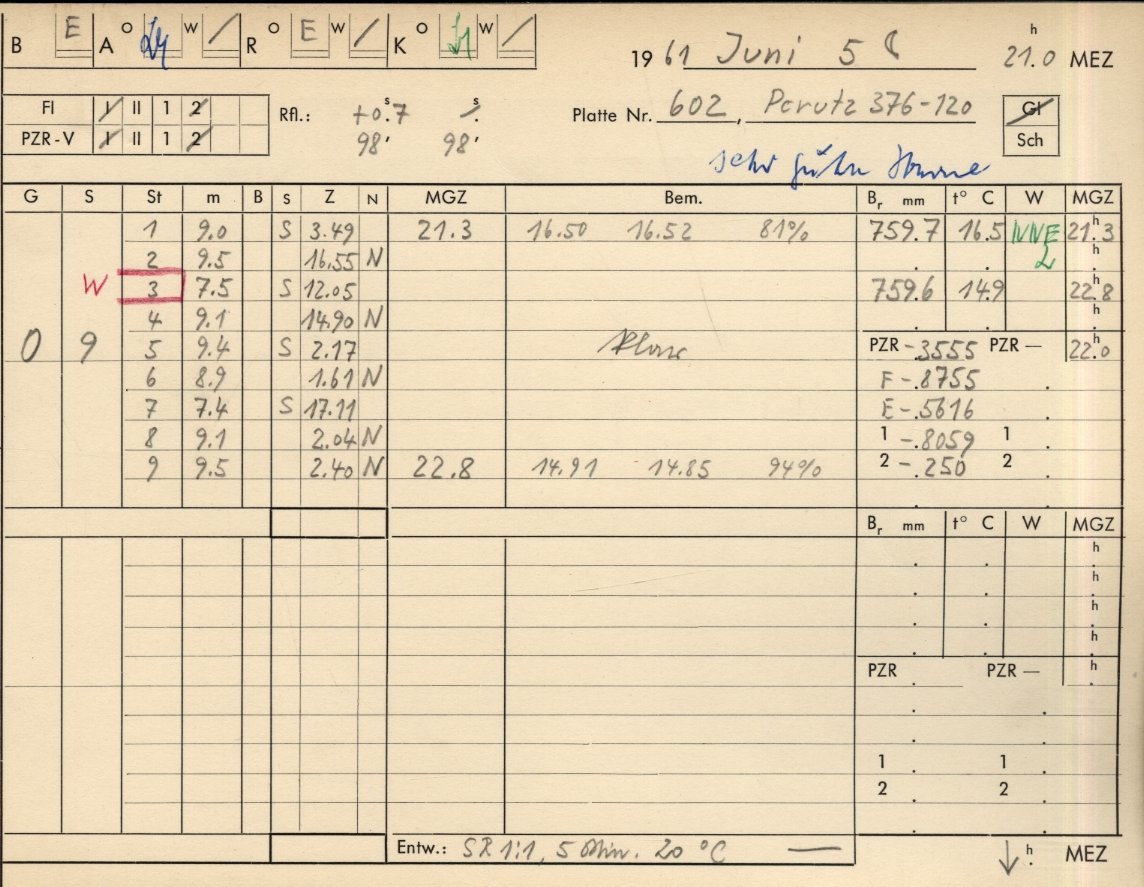 B E A O W / R O E W / K O W /
19 61 Juni 5 h 21.0 MEZ
FI I II 1 2
PZR-V I II 1 2
Rfl.: +0.ˢ7 s
98' 98'
Platte Nr. 602, Perutz 376-120
Gl
Sch
sehr
G S St m B S Z N MGZ Bem. Bᵣ mm t° C W MGZ
1 9.0 S 3.49 21.3 16.50 16.52 81% 759.7 16.5 NNE 21.ʰ3
2 9.5 16.55 N 2 h
W 3 7.5 S 12.05 759.6 14.9 22.ʰ8
4 9.1 14.90 N h
0 9 5 9.4 S 2.17 PZR -.3555 PZR — 22.ʰ0
6 8.9 1.61 N F -.8755
7 7.4 S 17.11 E -.5616
8 9.1 2.04 N 1 -.8059 1
9 9.5 2.40 N 22.8 14.91 14.85 94% 2 -.250 2
Bᵣ mm t° C W MGZ
h
h
h
h
PZR PZR — h
1 1
2 2
Entw.: SR 1:1, 5 Min. 20 °C — h MEZ